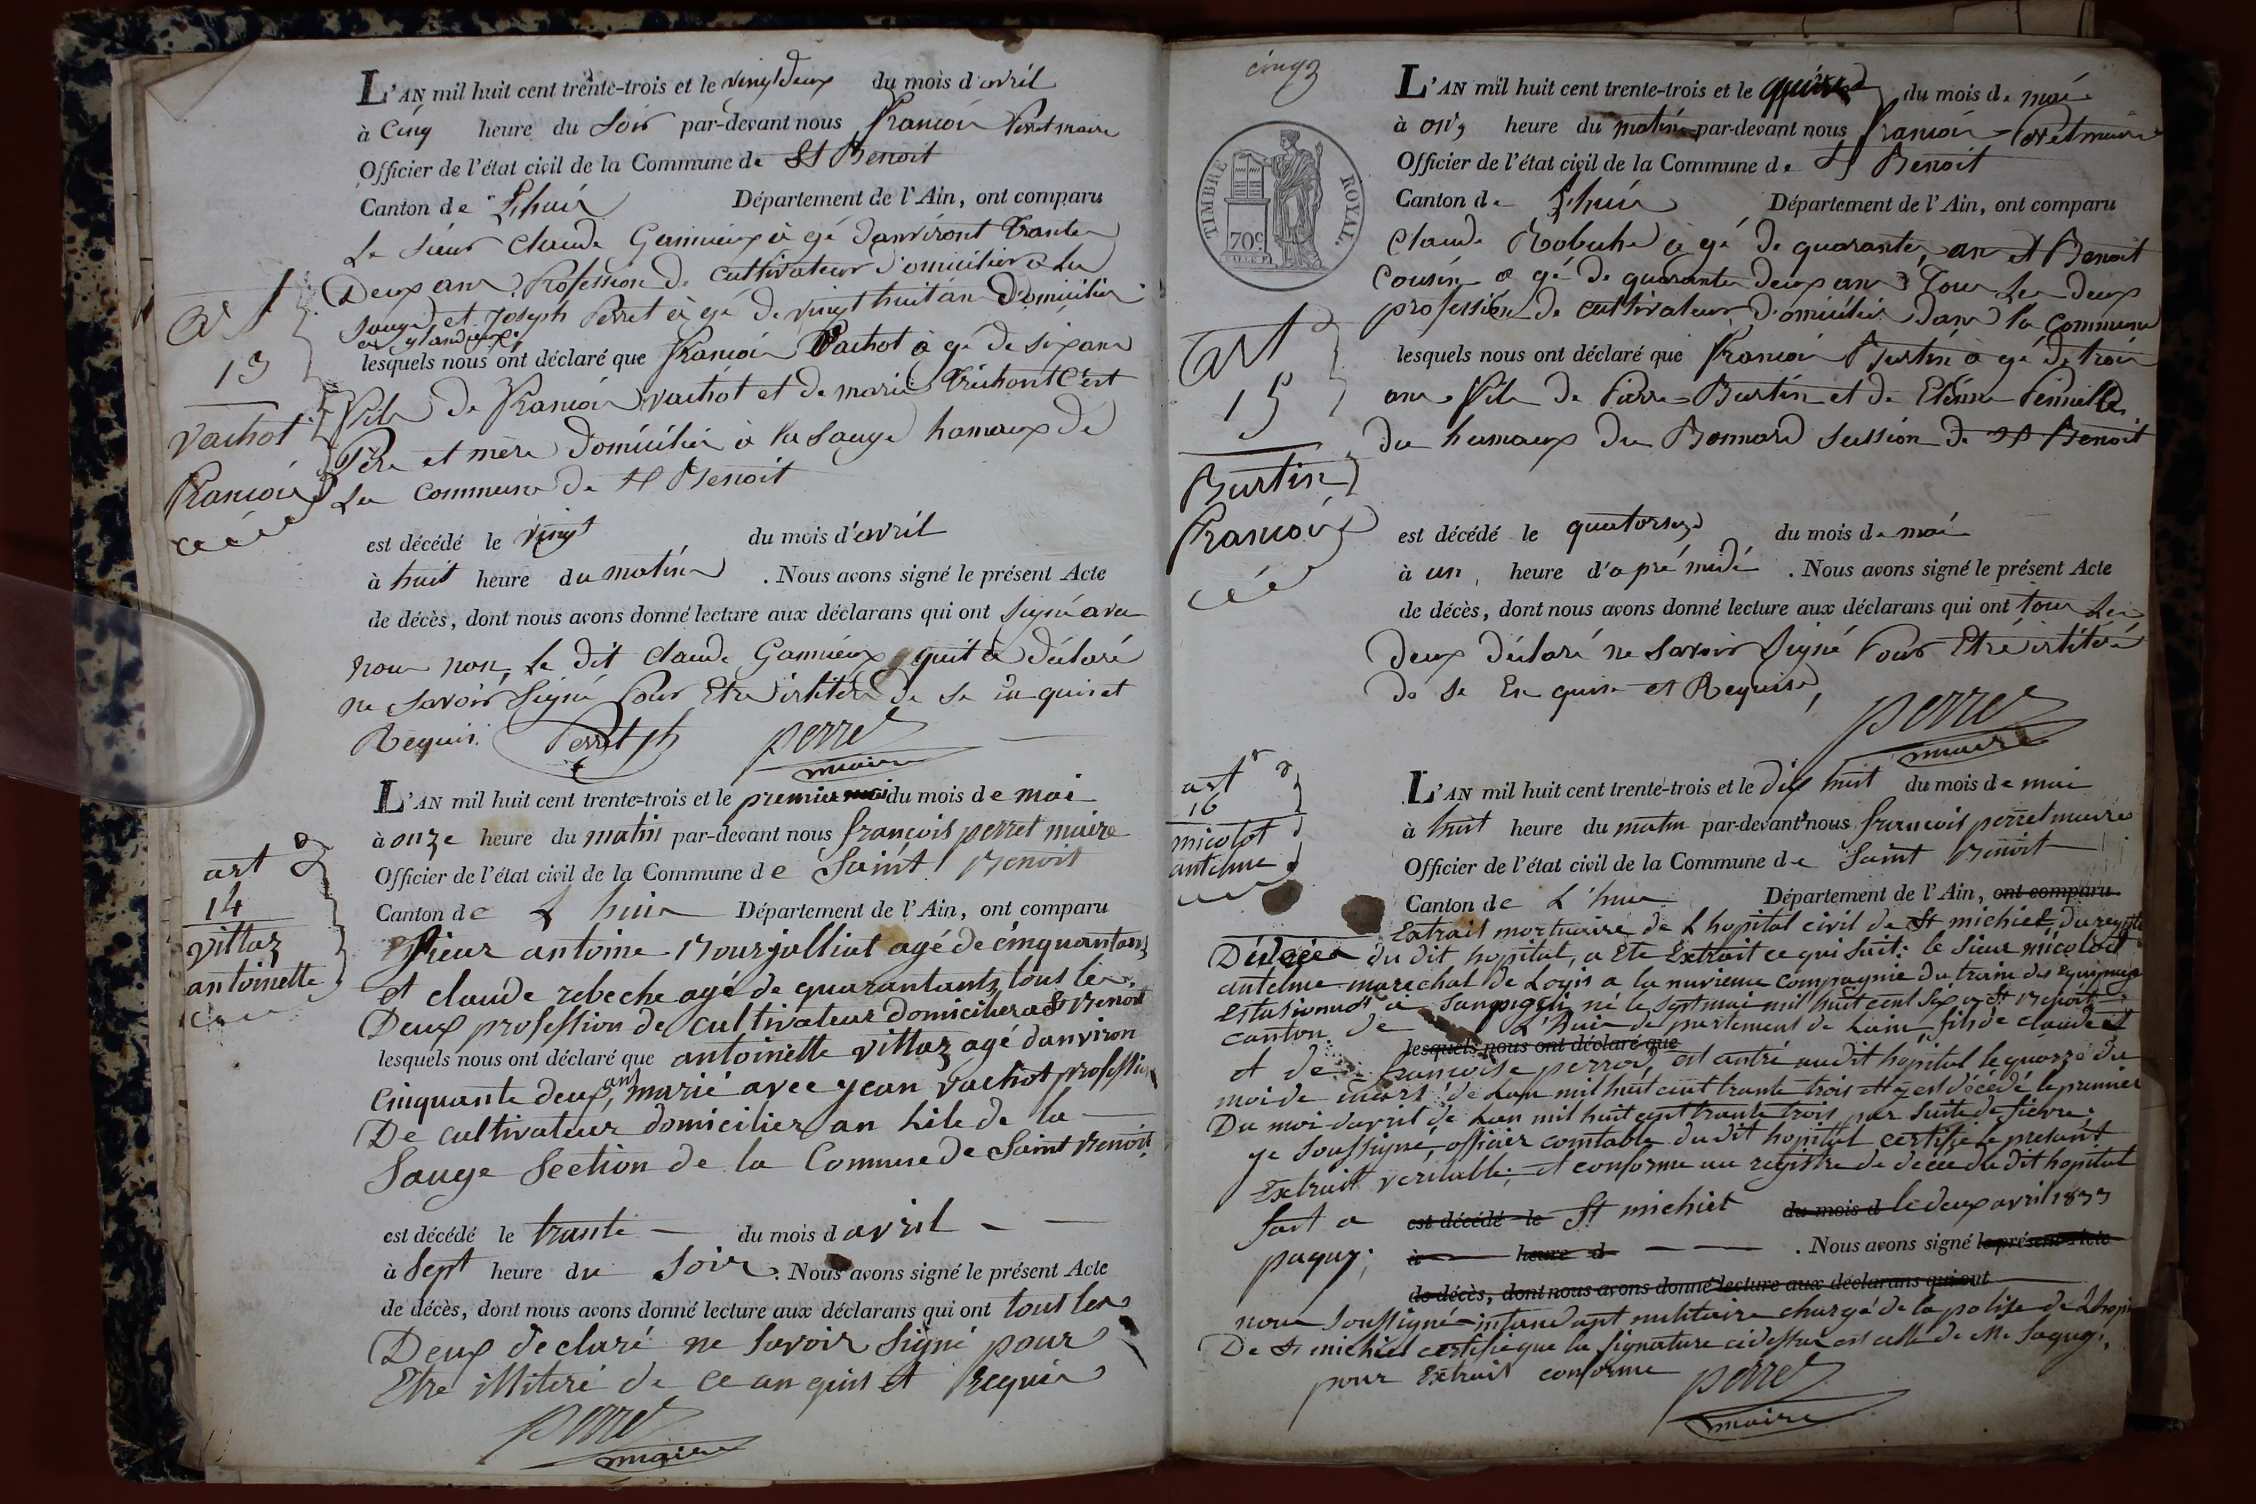 L'AN mil huit cent trente-trois et le vingtdeux du mois d'avril
à Cinq heure du Soir par-devant nous François Perret maire
Officier de l'état civil de la Commune de St Benoit
Canton de Lhuis Département de l'Ain, ont comparu
Le Sieur Claude à gé danviront trante
Deux ans Profession de cultivateur domicilier a La
Sauge et Joseph Perret à gé de vingt huit an Domicilier
a glandieux
lesquels nous ont déclaré que François Vachot à gé de six ans
Fils de François vachot et de marie
Père et mère Domicilier à la Sauge hamaux de
La Commune De St Benoit
est décédé le vingt du mois d'avril
à huit heure du matin . Nous avons signé le présent Acte
de décès, dont nous avons donné lecture aux déclarans qui ont Signé avec
nous non, Le Dit Claude quit à déclaré
ne Savoir Signé Pour Etre de se in quis et
Requis. Perret jh perret
maire
art
13
Vachot
François
L'AN mil huit cent trente-trois et le premier mai du mois de mai
à onze heure du matin par-devant nous françois perret maire
Officier de l'état civil de la Commune de Saint Benoit
Canton de L huis Département de l'Ain, ont comparu
Sieur antoine Bourjalliat agé de cinquantans
et claude rebeche agé de quarantans tous les
Deux profession de cultivateur domicilier a St Benoit
lesquels nous ont déclaré que antoinette villaz agé danviron
cinquante deux ans marié avec jean vachot profession
De cultivateur domicilier an Lile de la
Sauge Section de la Commune de Saint Benoit
est décédé le trante du mois d avril
à Sept heure du Soir. Nous avons signé le présent Acte
de décès, dont nous avons donné lecture aux déclarans qui ont tous les
Deux declaré ne Savoir Signé pour
Etre illiteré de ce an quis et Requis
perret
maire
art
14
villaz
antoinette
cinq
TIMBRE ROYAL
70c
L'AN mil huit cent trente-trois et le quinze du mois de mai
à onze heure du matin par-devant nous François Perret maire
Officier de l'état civil de la Commune de St Benoit
Canton de Lhuis Département de l'Ain, ont comparu
Claude Robeche à gé de quarante, an et Benoit
Cousin à gé de quarante deux ans Tous Les deux
profession de cultivateur domicilier dans la commune
lesquels nous ont déclaré que François Burtin à gé de trois
ans Fils de Pierre Burtin et de
du hamaux du Bonnard Section de St Benoit
est décédé le quatorze du mois de mai
à un, heure d'après midé . Nous avons signé le présent Acte
de décès, dont nous avons donné lecture aux déclarans qui ont tous Les
deux déclaré ne Savoir Signé Pour Etre
de se En quise et Requise,
perret
maire
art
15
Burtin
François
L'AN mil huit cent trente-trois et le dix huit du mois de mai
à huit heure du matin par-devant nous francois perret maire
Officier de l'état civil de la Commune de Saint Benoit
Canton de L'huis Département de l'Ain, ont comparu
Extrait mortuaire de Lhopital civil de St michiel du registre
Décées du dit hopital, a Ete Extrait ce qui Suit: le Sieur micolot
antelme marechal de Logis a la nuvieme compagnie du train des Equipages
né le Sept mai mil huit cent Six a St Benoit
canton de L'huis departement de Lain fils de claude et
lesquels nous ont déclaré que
et de francoise perrod, est antré audit hopital le quinze du
moi de mars de Lan mil huit cent trante trois et y est décédé le premier
Du moi davril de Lan mil huit cent trante trois par Suite de fievre.
je Soussigné, officier comtable du dit hopital certifie le présant
Extrait veritable, et conforme au registre de décée du dit hopital
fait a est décédé le St michiel du mois d le deux avril 1833
à heure d . Nous avons signé le présent Acte
de décès, dont nous avons donné lecture aux déclarans qui ont
nous Soussigné intandant militaire chargé de la police de Lhopi
De St michiel certifie que la signature cidessus est celle de Mr
pour Extrait conforme perret
maire
art
16
micolot
antelme